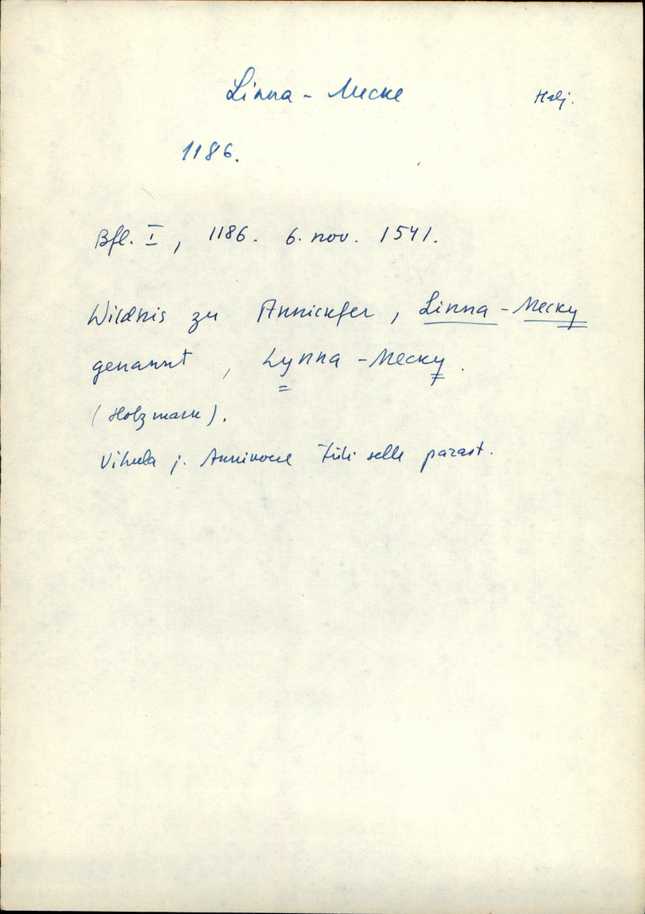 Linna - Mecke Halj.
1186.
Bfl. I, 1186. 6. nov. 1541.
Wildnis zu Annickfer, Linna - Mecky
genannt, Lynna - Mecky.
(Holzmark).
Vihula j. Annikvere tüli selle pärast.